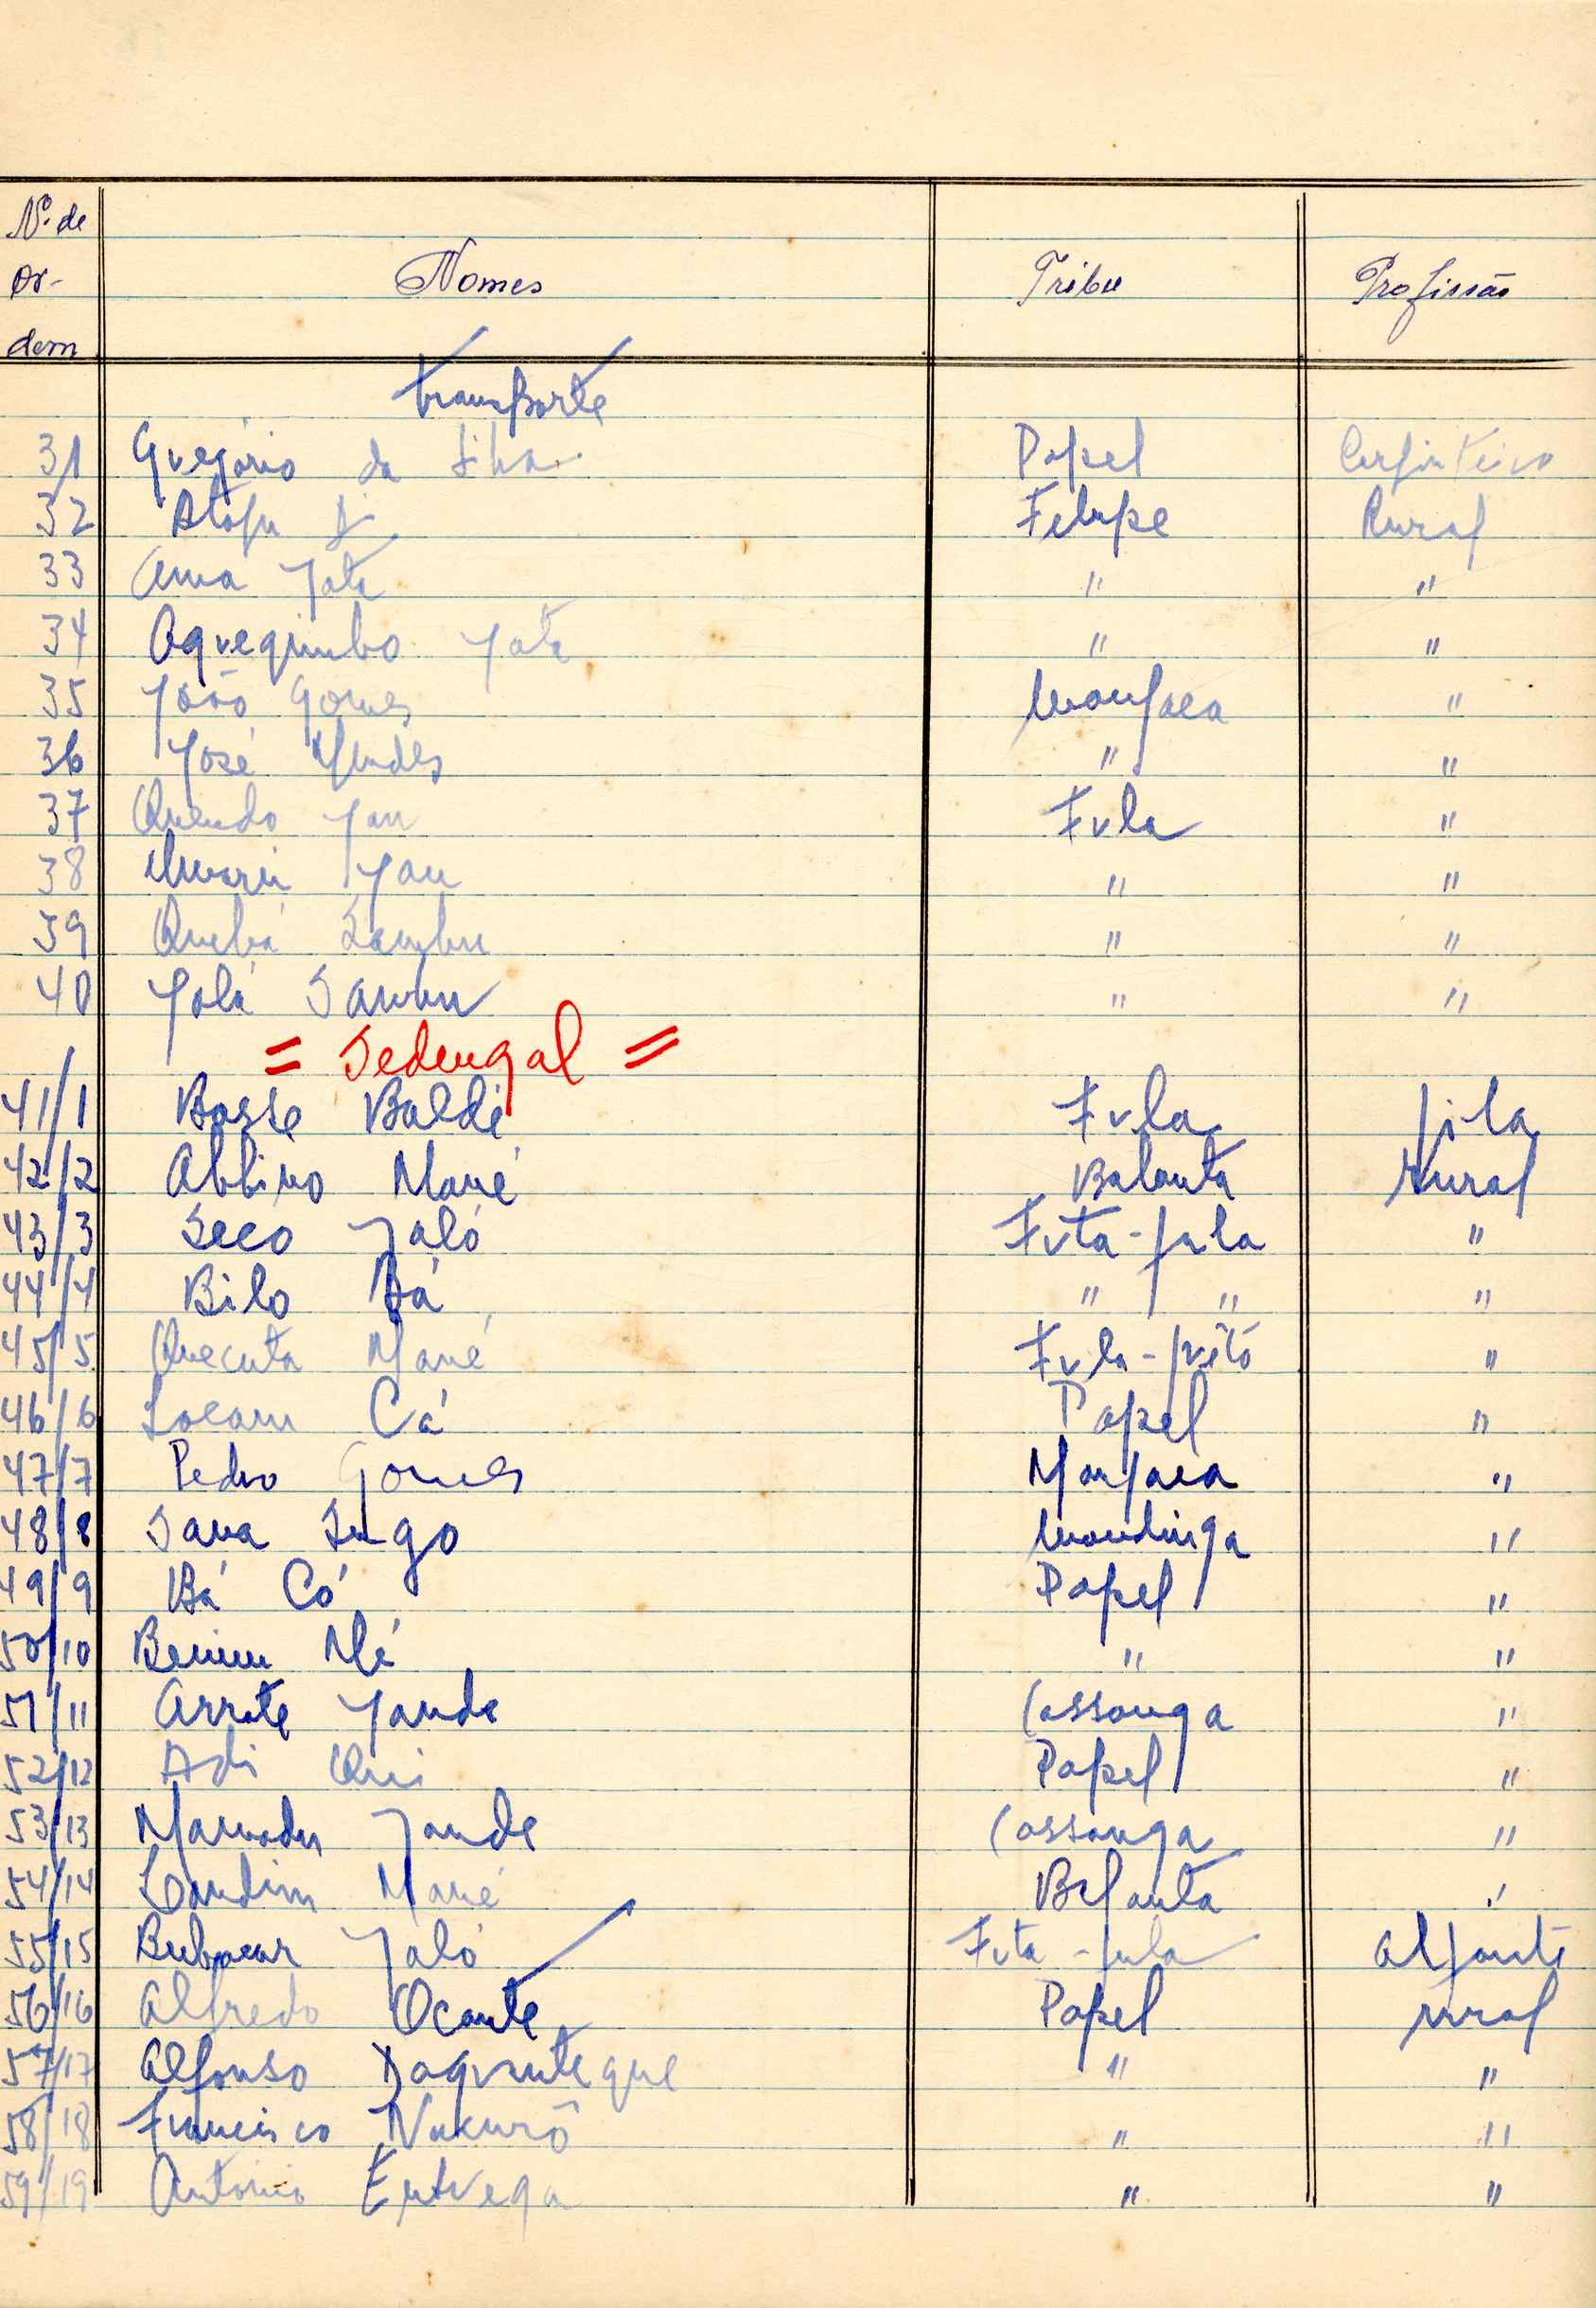 Nº de
Or-
dem
Nomes
Tribu
Profissão
transporte
31 Gregório da Silva Papel Carpinteiro
32 Felupe Rural
33 Jata " "
34 Jata " "
35 João Gomes Manjaca "
36 José Mendes " "
37 Quendo Jau Fula "
38 Jau " "
39 Quebá Sambu " "
40 Jalá Sambu " "
= Sedengal =
41/1 Basse Baldé Fula
42/2 Albino Mané Balanta Rural
43/3 Seco Jaló Futa-fula "
44/4 Bilo Bá " " "
45/5 Quecuta Mané Fula-preto "
46/6 Cá Papel "
47/7 Pedro Gomes Manjaca "
48/8 Sana Mandinga "
49/9 Bá Có Papel "
50/10 "  "
51/11 Arrate Jande Cassanga "
52/12 Adi Qui Papel "
53/13 Mamadu Jande Cassanga "
54/14 Landim Mané Balanta "
55/15 Bubacar Jaló Futa-fula Alfaiate
56/16 Alfredo Ocante Papel rural
57/17 Alfonso " "
58/18 Francisco Nacurô " "
59/19 António Entrega " "